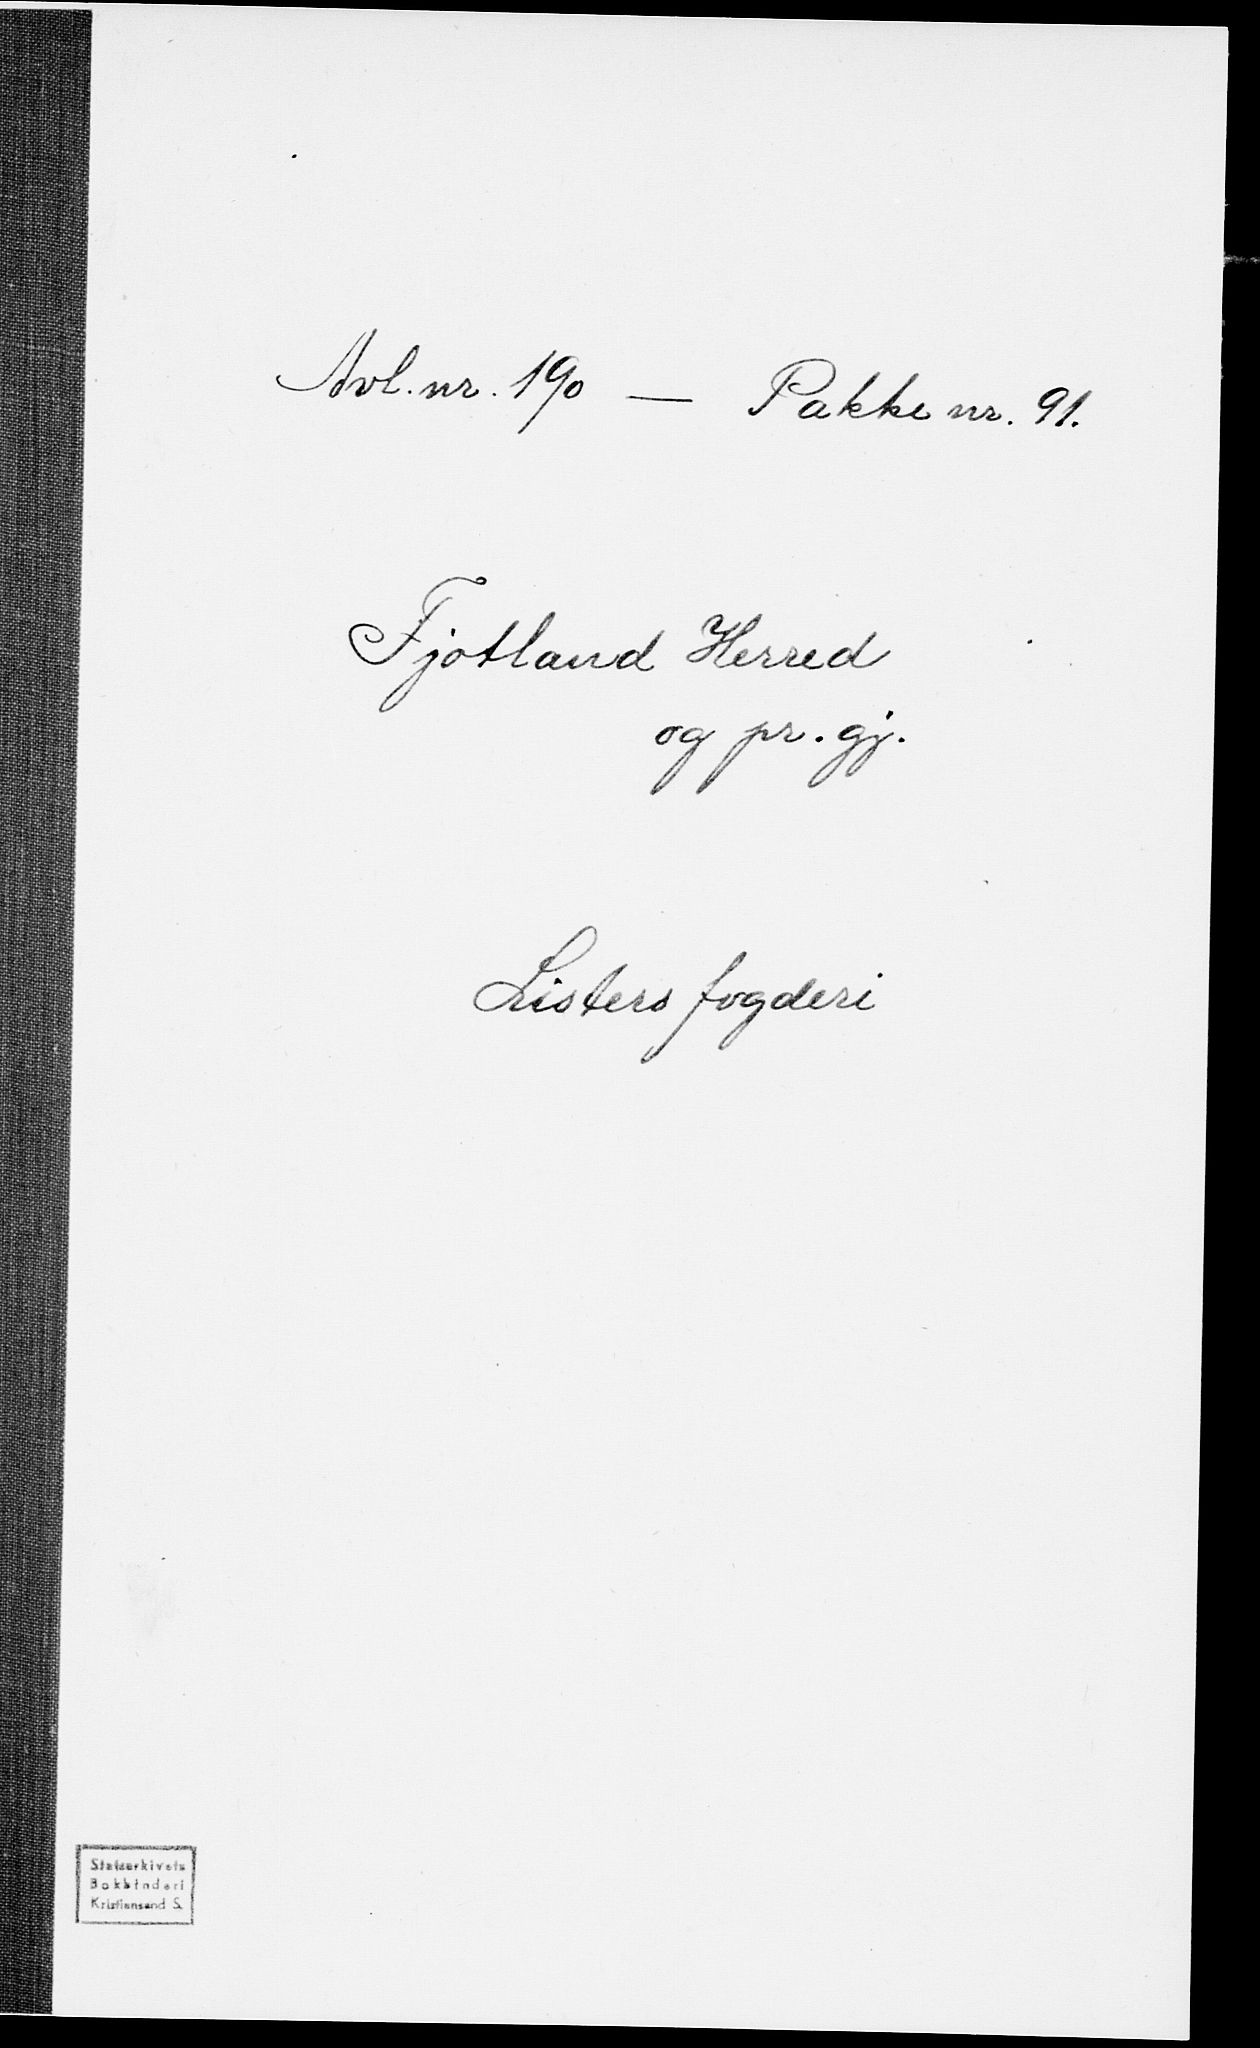 Avl. nr. 190 — Pakke nr. 91.
Fjotland Herred
og pr. gj.
Listers fogderi
Statsarkivets
Bokbinderi
Kristiansand S.